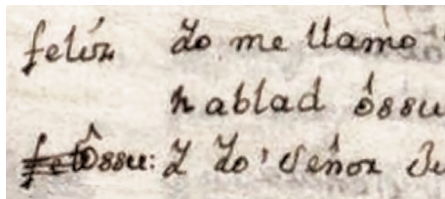 felix Lo me llamo
hablad ôssu
ôssu: Z Lo' Señor